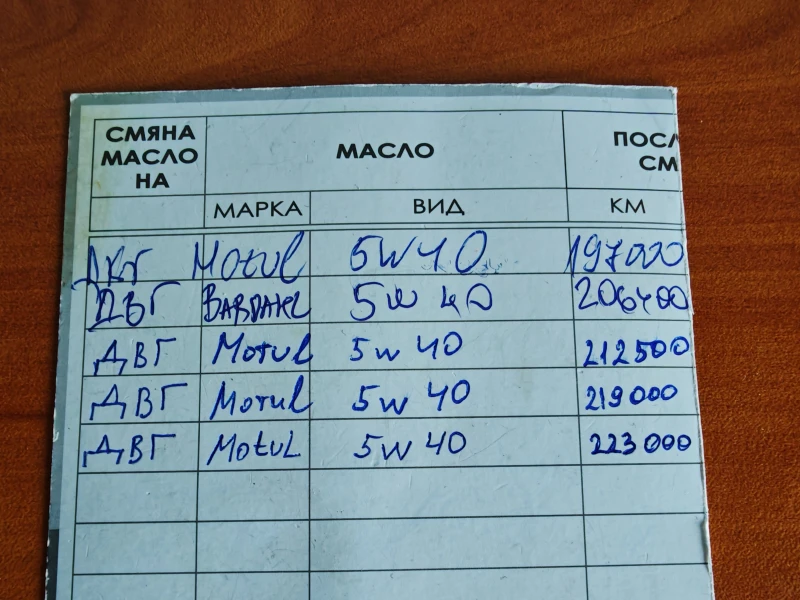 СМЯНА МАСЛО НА МАСЛО ПОСЛ СМ
МАРКА ВИД КМ
ДВГ Motul 5W40 197000
ДВГ BARDAHL 5w 40 206400
ДВГ Motul 5w 40 212500
ДВГ Motul 5w 40 219000
ДВГ Motul 5w 40 223000